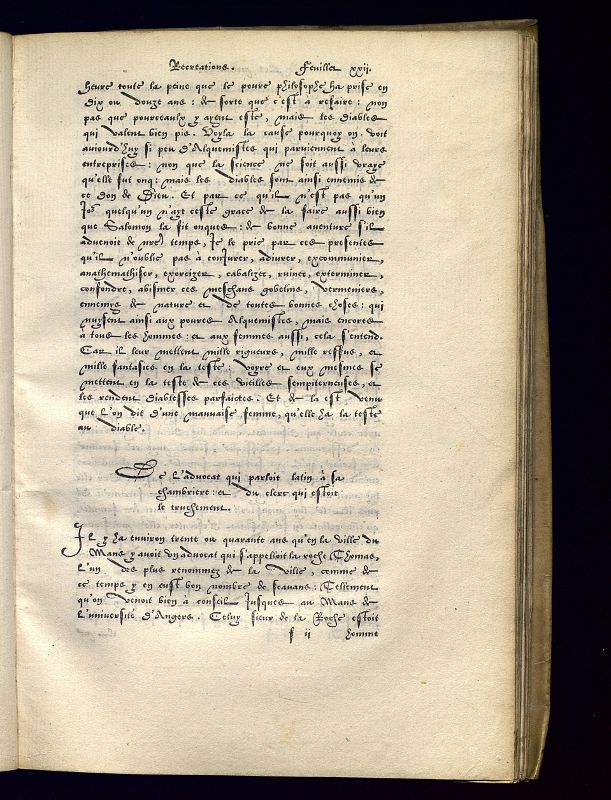 Recreations. Feuillet xxii.
heure toute la peine que le poure philosophe ha prise en
dix ou douze ans: de sorte que c'est a refaire: non
pas que pourceaulx y ayent esté, mais les diables
qui valent bien pis. Voyla la cause pourquoy on voit
auiourd'huy si peu d'Alquemistes qui paruiennent à leurs
entreprises: non que la science ne soit aussi vraye
qu'elle fut onq: mais les diables sont ainsi ennemis de
ce don de Dieu. Et par ce qu'il n'est pas qu'un
Jor quelqu'un n'ayt ceste grace de la faire aussi bien
que Salomon la fit onques: de bonne auenture s'il
aduenoit de nre temps, Je le prie par ces presentes
qu'il n'oublie pas à coniurer, adiurer, excommunier,
anathemathiser, exorcizer, cabalizer, ruiner, exterminer,
confondre, abismer ces meschans gobelins, vermeniers,
ennemys de nature et de toutes bonnes choses: qui
nuysent ainsi aux poures Alquemistes, mais encores
à tous les hommes: et aux femmes aussi, cela s'entend.
Car il leur mettent mille rigueurs, mille reffus, et
mille fantasies en la teste: voyre et eux mesmes se
mettent en la teste de ces vieilles sempiterneuses, et
les rendent diablesses parfaictes. Et de la est venu
que l'on dit d'une mauuaise femme, qu'elle ha la teste
au diable.
De l'aduocat qui parloit latin à sa
chambriere: et du clerc qui estoit
le truchement.
Il y ha enuiron trente ou quarante ans qu'en la ville du
Mans y auoit vn aduocat qui s'appelloit la roche Thomas,
l'un des plus renommez de la ville, comme de
ce temps y en eust bon nombre de scauans: Tellement
qu'on venoit bien à conseil jusques au Mans de
l'université d'Angers. Celuy sieur de la Roche estoit
f ii homme